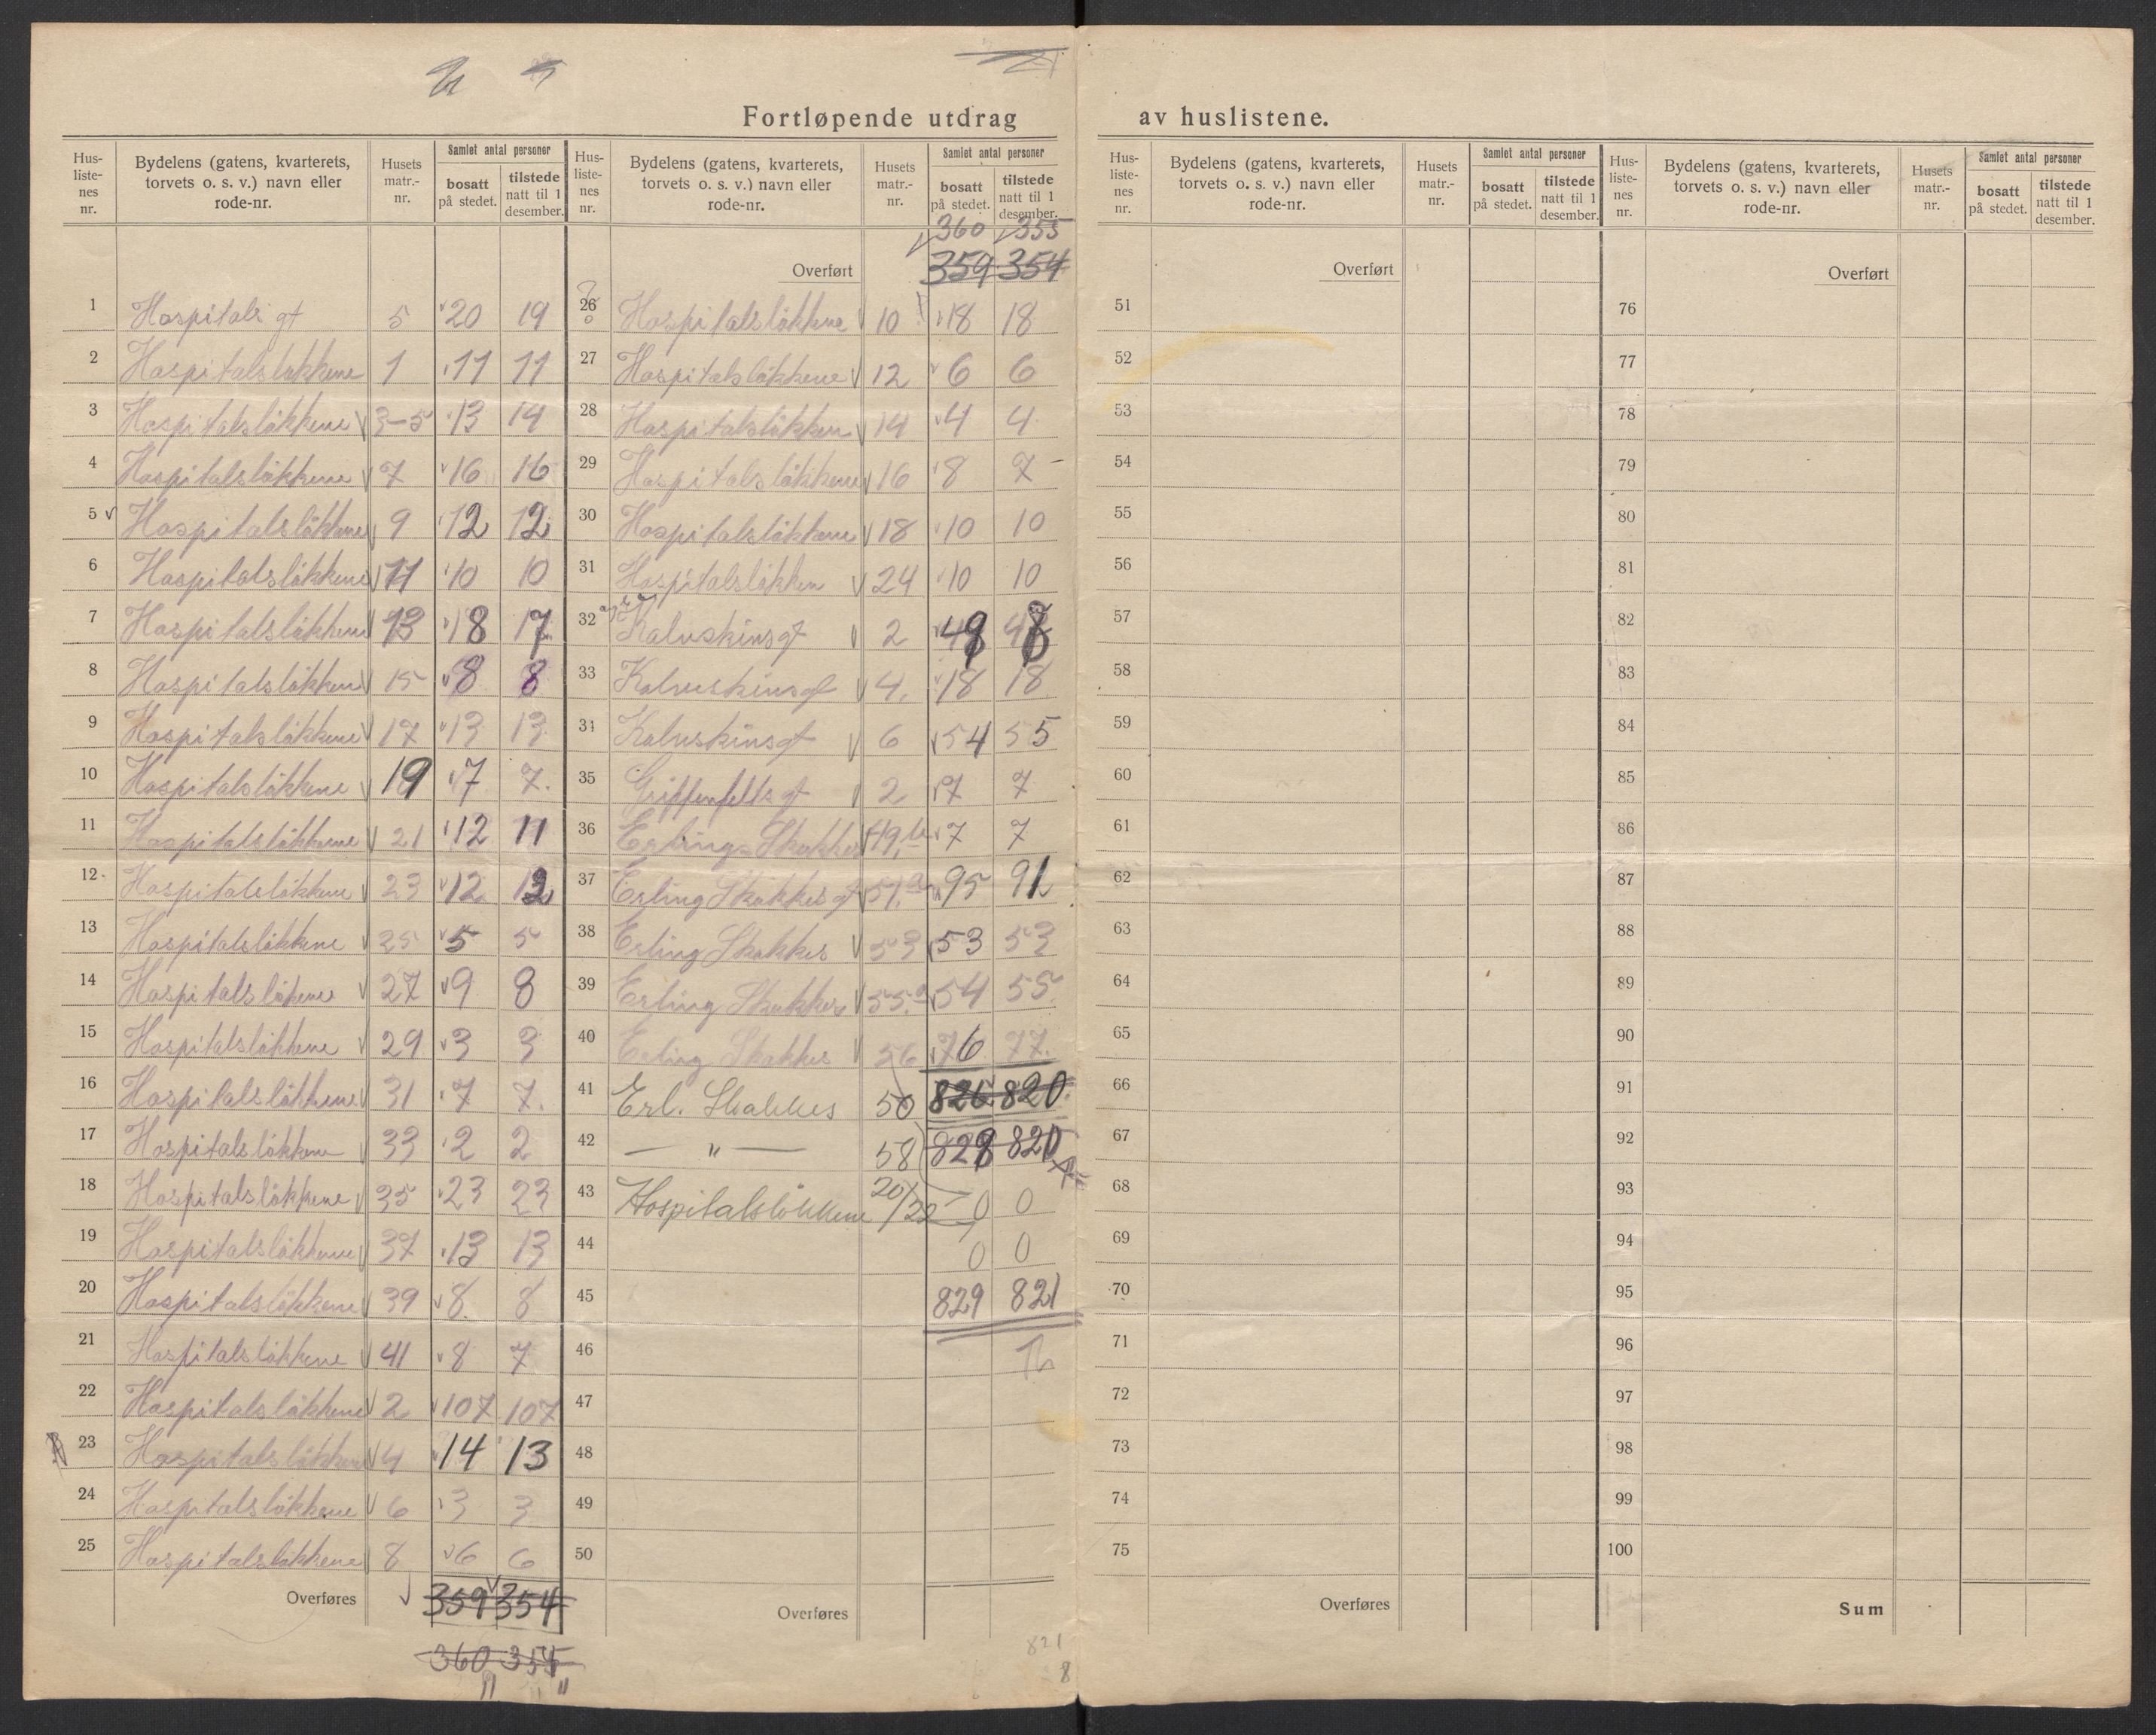 Fortløpende utdrag av huslistene.
Hus-listenes nr. Bydelens (gatens, kvarterets, torvets o. s. v.) navn eller rode-nr. Husets matr.-nr. Samlet antal personer bosatt på stedet. tilstede natt til 1 desember.
1 Hospitals gt 5 20 19
2 Hospitalsløkkene 1 11 11
3 Hospitalsløkkene 3-5 13 14
4 Hospitalsløkkene 7 16 16
5 Hospitalsløkkene 9 12 12
6 Hospitalsløkkene 11 10 10
7 Hospitalsløkkene 13 18 17
8 Hospitalsløkkene 15 8 8
9 Hospitalsløkkene 17 13 13
10 Hospitalsløkkene 19 7 7
11 Hospitalsløkkene 21 12 11
12 Hospitalsløkkene 23 12 12
13 Hospitalsløkkene 25 5 5
14 Hospitalsløkkene 27 9 8
15 Hospitalsløkkene 29 3 3
16 Hospitalsløkkene 31 7 7
17 Hospitalsløkkene 33 2 2
18 Hospitalsløkkene 35 23 23
19 Hospitalsløkkene 37 13 13
20 Hospitalsløkkene 39 8 8
21 Hospitalsløkkene 41 8 7
22 Hospitalsløkkene 2 107 107
23 Hospitalsløkkene 4 14 13
24 Hospitalsløkkene 6 3 3
25 Hospitalsløkkene 8 6 6
Overføres 359 354
360 355
Hus-listenes nr. Bydelens (gatens, kvarterets, torvets o. s. v.) navn eller rode-nr. Husets matr.-nr. Samlet antal personer bosatt på stedet. tilstede natt til 1 desember.
360 355
Overført 359 354
26 Hospitalsløkkene 10 18 18
27 Hospitalsløkkene 12 6 6
28 Hospitalsløkken 14 4 4
29 Hospitalsløkkene 16 8 7
30 Hospitalsløkkene 18 10 10
31 Hospitalsløkken 24 10 10
32 Kalvskinsgt 2 48
33 Kalveskinsgt 4 18 18
34 Kalveskinsgt 6 54 55
35 Griffenfelts gt 2 7 7
36 Erling Skakkes 7 7
37 Erling Skakkes gt 51a 95 91
38 Erling Skakkes 53 53 53
39 Erling Skakkes 55a 54 55
40 Erling Skakkes 56 76 77
41 Erl. Skakkes 50 826 820
42 — " — 58 828 820
43 Hospitalsløkkene 20/22 0 0
44 0 0
45 829 821
46
47
48
49
50
Overføres
821
8
Hus-listenes nr. Bydelens (gatens, kvarterets, torvets o. s. v.) navn eller rode-nr. Husets matr.-nr. Samlet antal personer bosatt på stedet. tilstede natt til 1 desember.
Overført
51
52
53
54
55
56
57
58
59
60
61
62
63
64
65
66
67
68
69
70
71
72
73
74
75
Overføres
Hus-listenes nr. Bydelens (gatens, kvarterets, torvets o. s. v.) navn eller rode-nr. Husets matr.-nr. Samlet antal personer bosatt på stedet. tilstede natt til 1 desember.
Overført
76
77
78
79
80
81
82
83
84
85
86
87
88
89
90
91
92
93
94
95
96
97
98
99
100
Sum